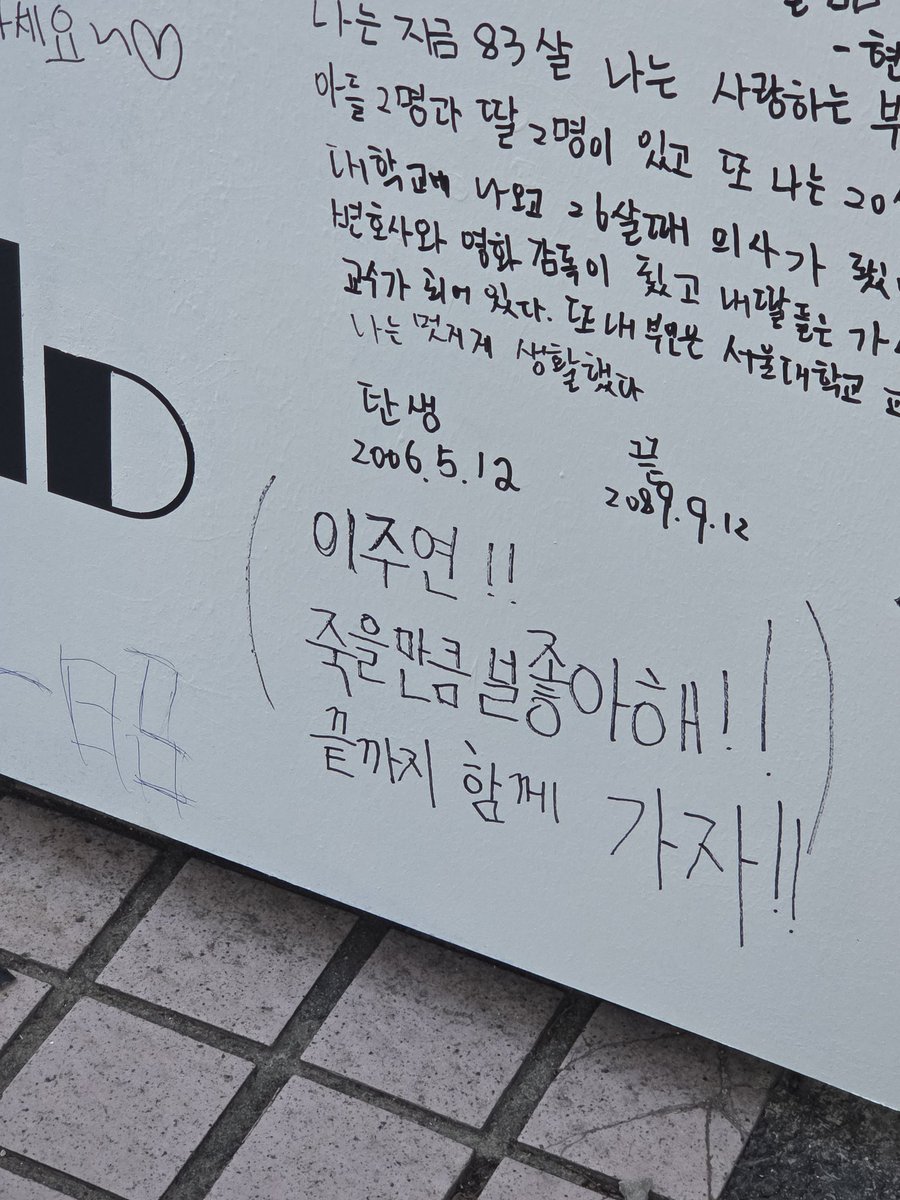 세요
나는 지금 83살 나는 사랑하는
아들 2명과 딸 2명이 있고 또 나는 20
대학교에 나오고 26살때 의사가 됐
변호사와 영화 감독이 됬고 내딸들은 가
교수가 되어 있다. 또 내 부인은 서울대학교
나는 멋지게 생활했다
탄생
2006.5.12
끝
2089.9.12
이주연!!
죽을만큼 널 좋아해!!
끝까지 함께 가자!!